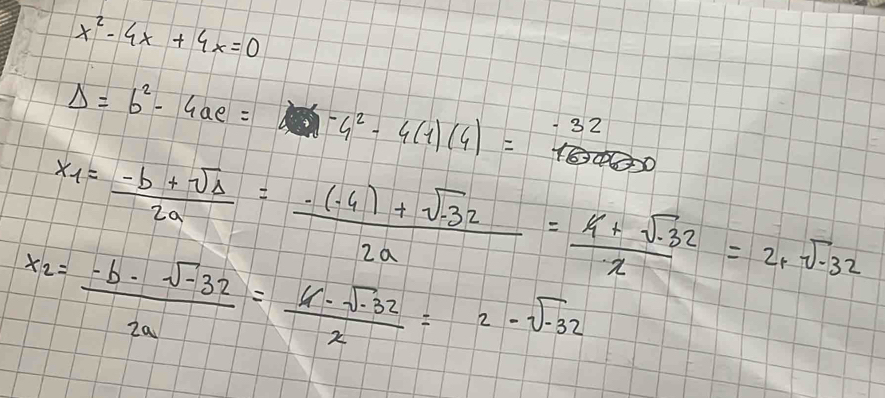 x² - 4x + 4x = 0
Δ = b² - 4ac = -4² - 4(1)(4) = -32
x1 = (-b + √Δ)/2a = (-(-4) + √-32)/2a = (4 + √-32)/2 = 2 + √-32
x2 = (-b - √-32)/2a = (4 - √-32)/2 = 2 - √-32